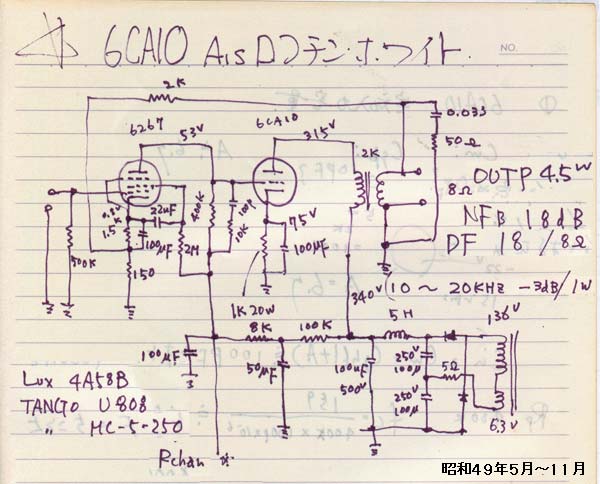 6CA10 AIS ロフテンホワイト
NO.
2K
6267
53V
6CA10
315V
2K
0.033
50Ω
8Ω
OUTP 4.5W
NFB 18dB
DF 18/8Ω
10～20KHz -3dB/1W
0.8V
1.5K
22μF
100μF
2M
150
500K
400K
100P
10K
75V
100μF
1K 20W
340V
8K
100K
5H
136V
100μF
50μF
100μF
500V
250V
100μ
5Ω
250V
100μ
6.3V
Lux 4A58B
TANGO U808
〃 MC-5-250
Rchan
昭和49年5月～11月